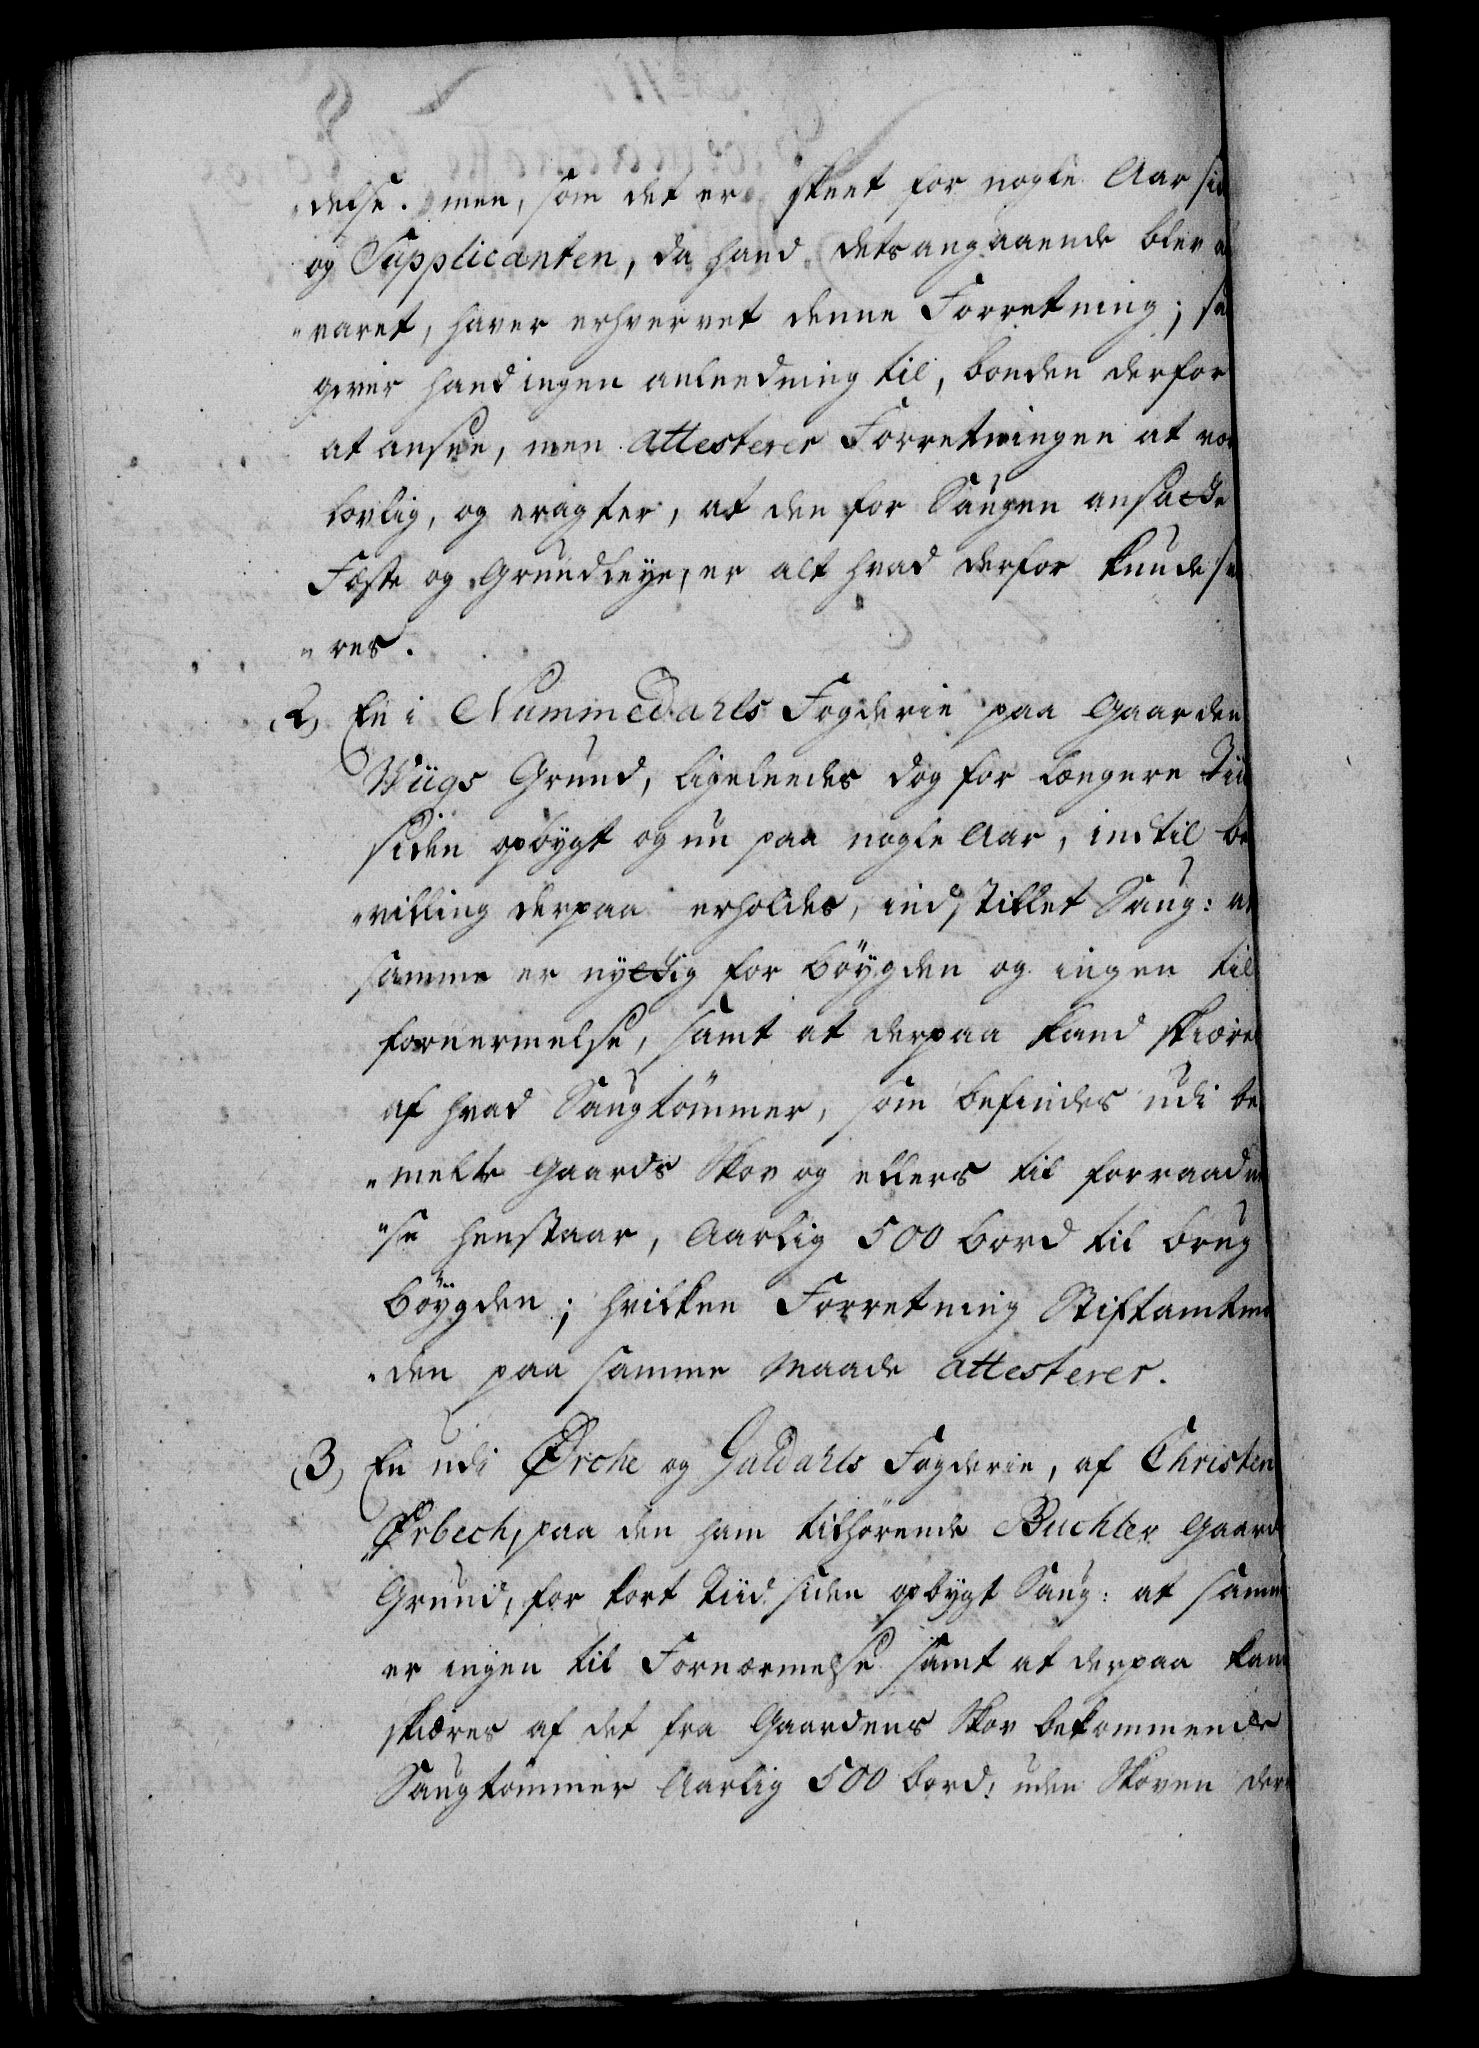 "delse. men, som det er skeet for nogle Aar sid
og Supplicanten, da hand dets angaaende blev a
"varet, haver erhvervet denne Forretning; saa
giver hand ingen anleedning til, bonden derfor
at ansee, men attesterer Forretningen at vær
lovlig, og eragter, at den for Saugen ansadte
Fæste og Grundleye, er alt hvad derfor kunde sva
"res.
2, En i Nummedahls Fogderie paa Gaarden
Wiigs Grund, ligeleedes dog for længere Tiid
siden opbygt og nu paa nogle Aar, indtil be
"villing derpaa erholdes, indstillet Saug: at
samme er nyttig for bøygden og ingen til
fornermelse, samt at derpaa kand skiære
af hvad Saugtømmer, som befindes udi be
"melte Gaards Skov og ellers til forraadnel
"se henstaar, Aarlig 500 bord til brug
bøygden; hvilken Forretning Stiftamtma
"den paa samme Maade attesterer.
3, En udi Ørche og Guldahls Fogderie, af Christen
Ørbech, paa den ham tilhørende Buchler Gaard
Grund, for kort Tiid siden opbygt Saug: at samm
er ingen til Fornærmelse samt at derpaa kan
skiæres af det fra Gaardens Skov bekommende
Saugtømmer Aarlig 500 bord, uden Skoven der